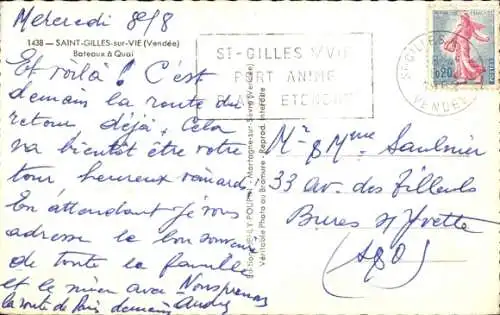 Mercredi 8/8
1438 - SAINT-GILLES-sur-VIE (Vendée)
Bateaux à Quai
Et voilà ! C'est
demain la route du
retour déjà. Cela
va bientôt être votre
tour heureux veinards
En attendant je vous
adresse le bon souvenir
de toute la famille
et le mien avec Nous prenons
la route de Paris demain André
ST-GILLES S/VIE
PORT ANIMÉ
ETENDUE
ST GILLES
VENDEE
0,20
Mortagne-sur-Sèvre (Vendée)
Véritable Photo au Bromure - Reprod. Interdite
Mr & Mme Saulnier
33 Av. des Tilleuls
Bures s/ Yvette
(S&O)